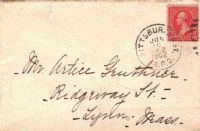 PITTSBURG
JUN
1902
R.P.O.
Mr. Artice Grusthner
Ridgeway St.
Lynn, Mass.